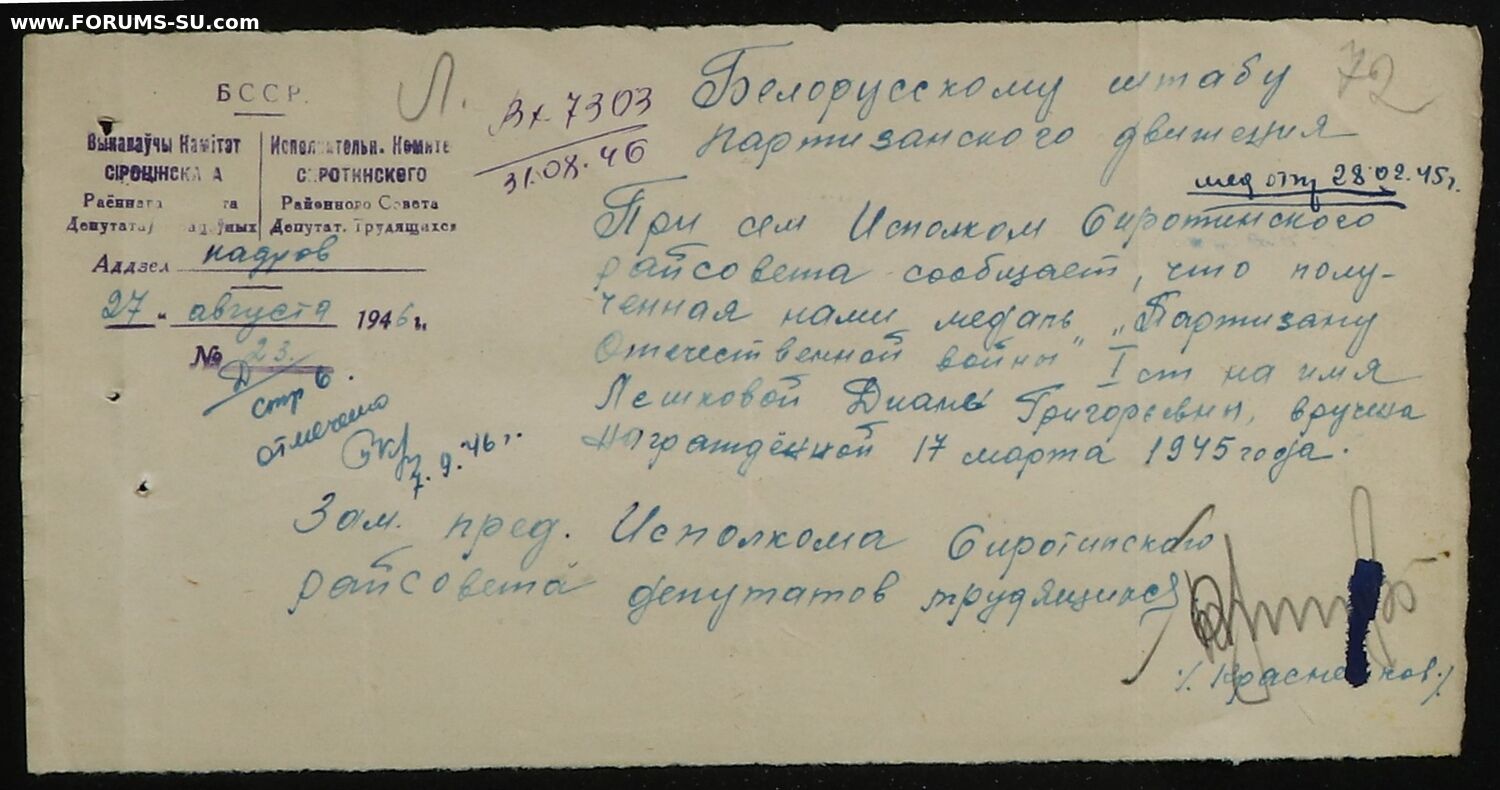 www.FORUMS-SU.com
БССР.
Выканаўчы Камітэт
Раённага
Дэпутатаў
Исполнительн. Комите
Сиротинского
Районного Совета
Депутат. Трудящихся
Аддзел кадров
27 " августа 1946 г.
№ 23.
Д
стр 6.
отмечено
7.9.46 г.
Л.
Вх. 7303
31.08.46
72
Белорусскому штабу
партизанского движения
мед отп 28.02.45г.
При сем Исполком Сиротинского
райсовета сообщает, что полу-
ченная нами медаль „Партизану
Отечественной войны" I ст на имя
Лешковой Дианы Григорьевны, вручена
награждённой 17 марта 1945 года.
Зам. пред. Исполкома Сиротинского
райсовета депутатов трудящихся